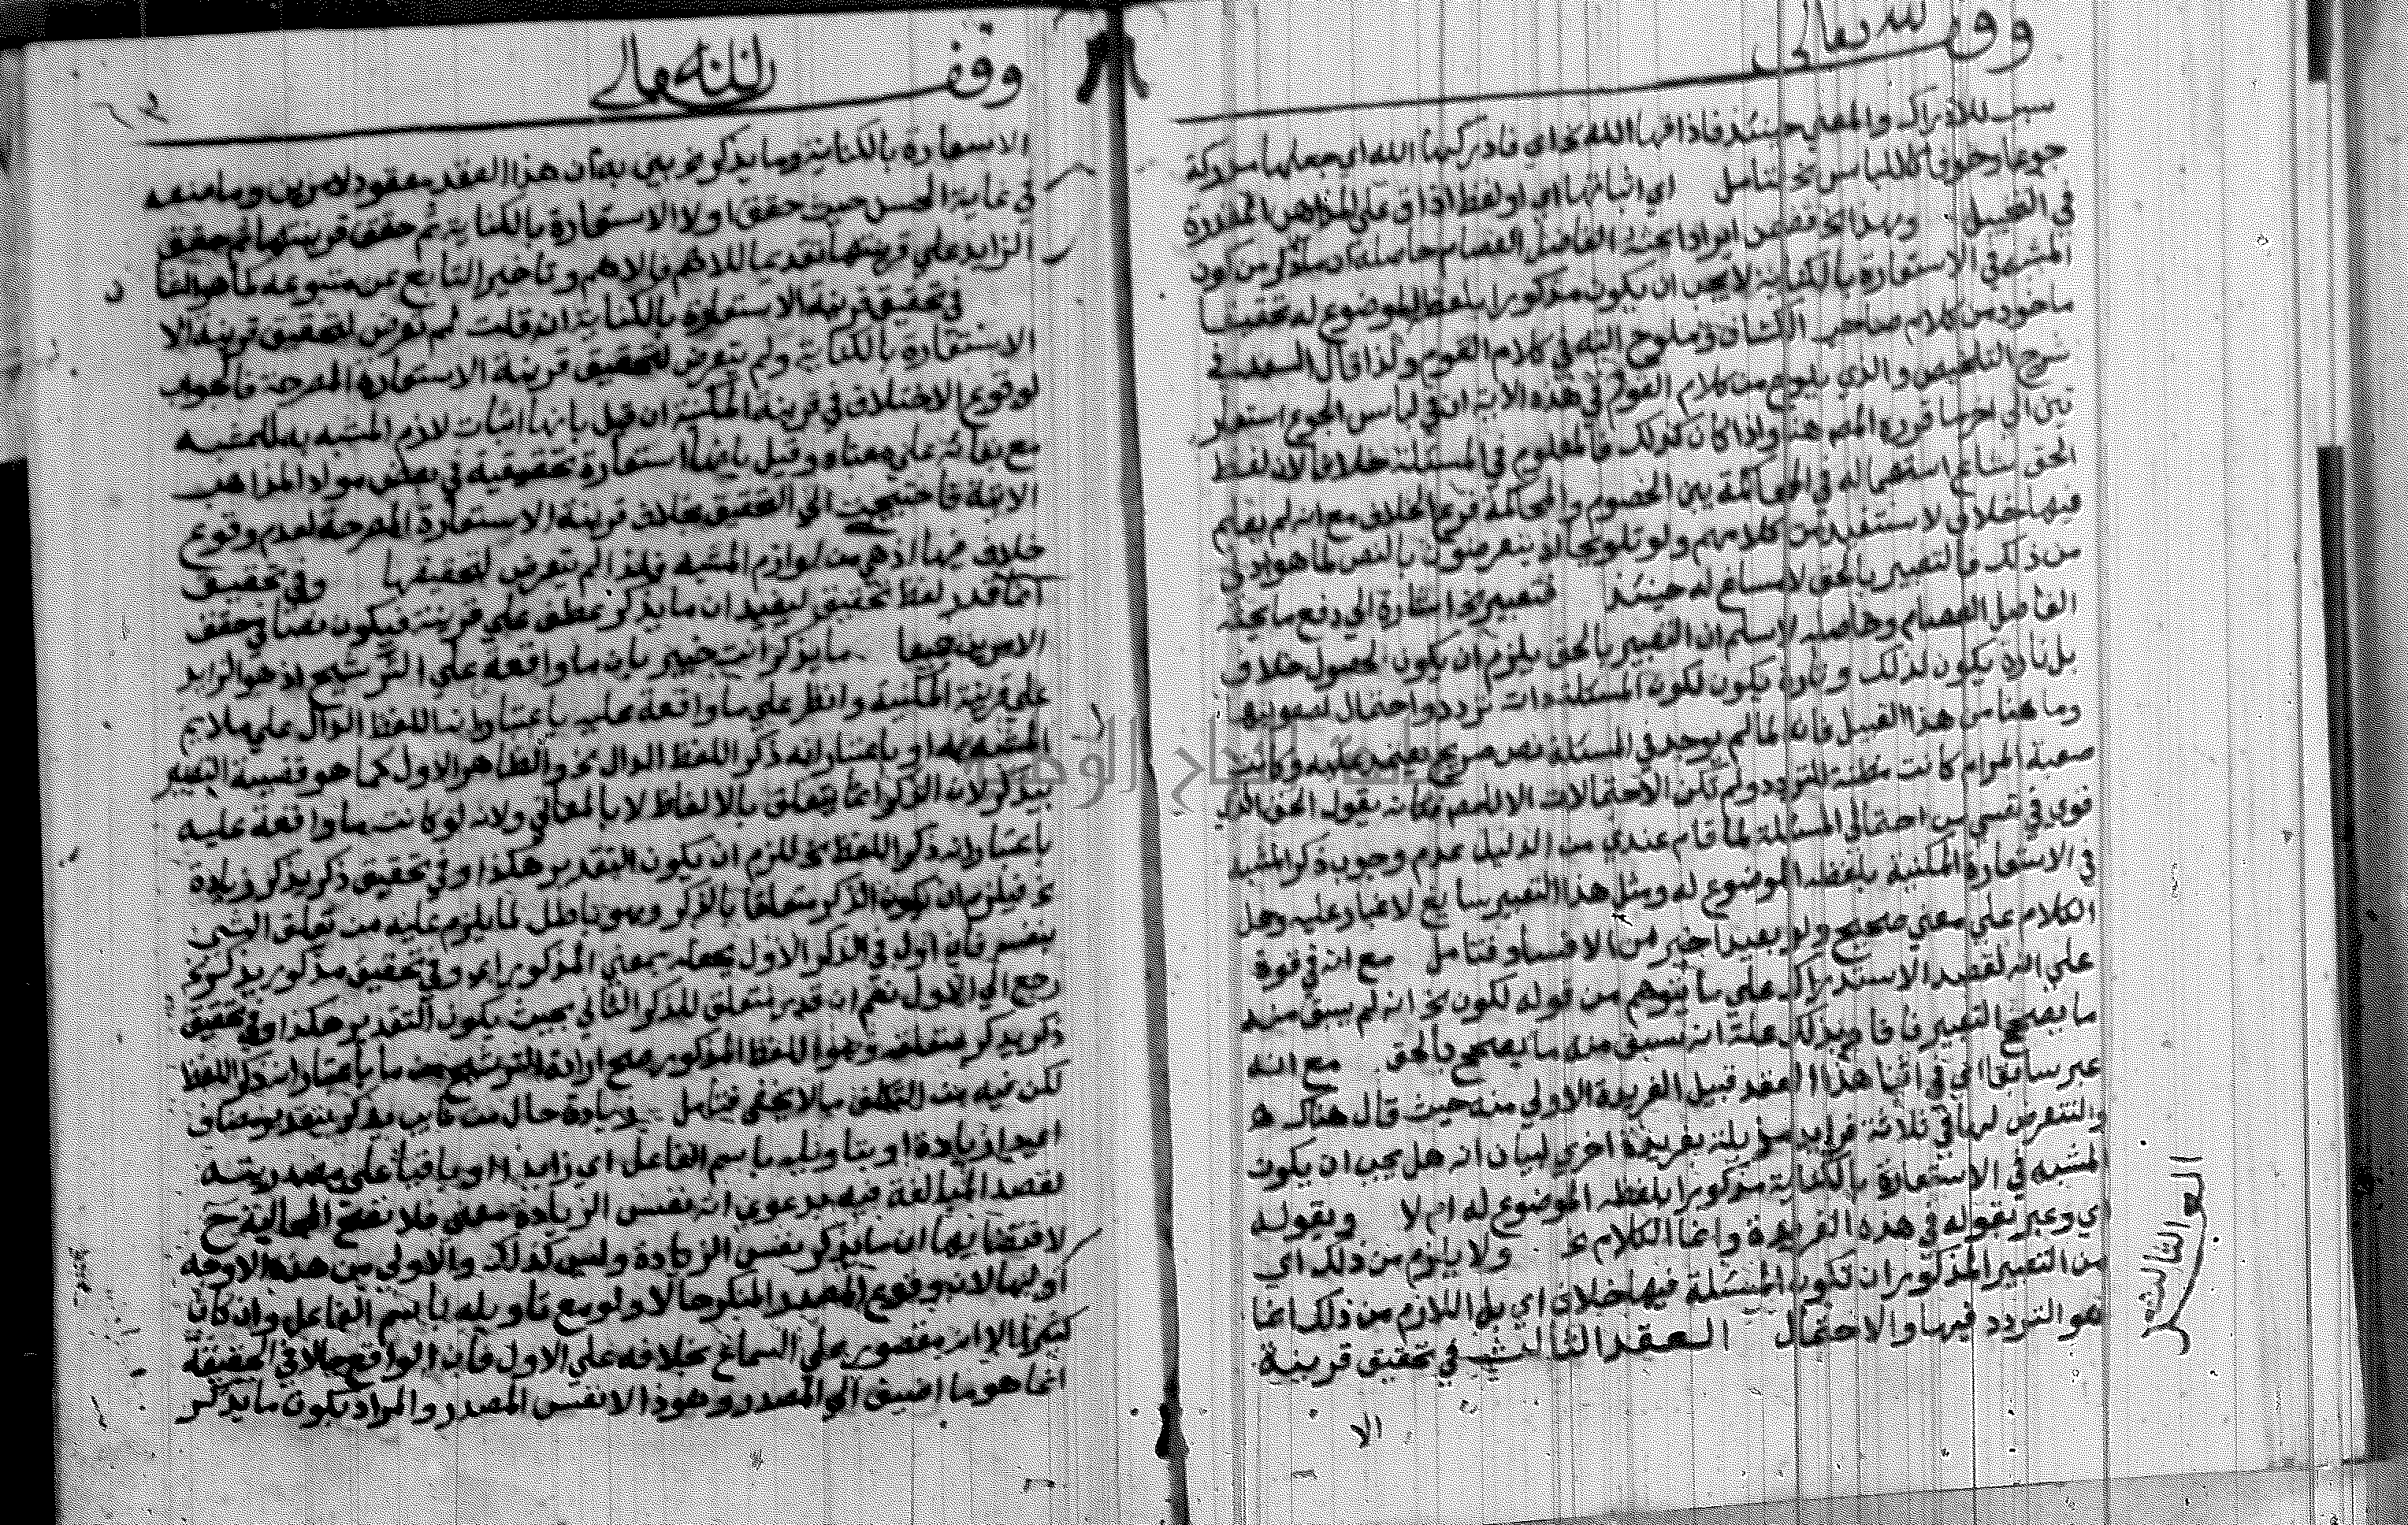 وقف لله تعالى
سبب للادراك والمعنى حينئذ فاذاقها الله الخ اي فادركها الله اي جعلها مدركة
جوعا وخوفا كاللباس الخ فتامل اي اثباتها اي او لفظ اذاق على المذاهب المقررة
في التخييل وبهذا الخ قصد من ايراد بحث الفاضل العصام حاصله ان ما ذكر من كون
المشبه في الاستعارة بالكناية لا يجب ان يكون مذكورا بلفظه الموضوع له تحقيقا
ماخوذ من كلام صاحب الكشاف وملوح اليه في كلام القوم ولذا قال السعد في
شرح التلخيص والذي يلوح من كلام القوم في هذه الاية ان في لباس الجوع استعار
تين الى اخر ما قرره المص هنا واذا كان كذلك فالمعلوم في المسئلة خلافا لان لفظ
الحق شاع استعماله في المحاكمة بين الخصوم والمحاكمة فرع الخلاف مع انه لم يفهم
فيها خلاف لا مستفيد من كلامهم ولو تلويحا لم يتعرضوا بالنص لما هو ادنى
من ذلك فالتعبير بالحق لا مساغ له حينئذ فتعبيره الخ اشارة الى دفع ما بحثه
الفاضل العصام وحاصله لا نسلم ان التعبير بالحق يلزم ان يكون لحصول خلاف
بل تارة يكون لذلك وتارة يكون لكون المسئلة ذات تردد واحتمال لصعوبتها
وما هنا من هذا القبيل فانه لما لم يوجد في المسئلة نص صريح يعتمد عليه وكانت
صعبة المرام كانت مظنة للتردد ولم تكن الاحتمالات الا للمص فكانه يقول الحق الذي
قوي في نفسي من احتمالي المسئلة لما قام عندي من الدليل عدم وجوب ذكر المشبه
في الاستعارة المكنية بلفظه الموضوع له ومثل هذا التعبير سايغ لا غبار عليه وحمل
الكلام على معنى صحيح ولو بعيدا خير من الافساد فتامل مع انه في قوة
على انه لقصد الاستدراك على ما يتوهم من قوله لكون الخ انه لم يسبق منه
ما يصحح التعبير فافاد بذلك علة انه سبق منه ما يصحح بالحق مع انه
عبر سابقا اي في اثنا هذا العقد قبيل الفريدة الاولى منه حيث قال هناك ه
والنتعرض لها في ثلاثة فرايد مذيلة بفريدة اخرى لبيان انه هل يجب ان يكون
المشبه في الاستعارة بالكناية مذكورا بلفظه الموضوع له ام لا وبقوله
اي وعبر بقوله في هذه الفريدة وانما الكلام الخ ولا يلزم من ذلك اي
من التعبير المذكور ان تكون المسئلة فيها خلاف اي بل اللازم من ذلك انما
هو التردد فيها والاحتمال العقد الثالث في تحقيق قرينة
العقد الثالث
الا
وقف لله تعالى
الاستعارة بالكناية وما يذكر الخ نبه به ان هذا العقد معقود لامرين وما صنعه
في غاية الحسن حيث حقق اولا الاستعارة بالكناية ثم حقق قرينتها ثم حقق
الزايد على قرينتها تقديما للاهم فالاهم وتاخير التابع عن متبوعه كما هو الشا
ن
في تحقيق قرينة الاستعارة بالكناية ان قلت لم تعرض لتحقيق قرينة الا
الاستعارة بالكناية ولم يتعرض لتحقيق قرينة الاستعارة المصرحة فالجواب
لوقوع الاختلاف في قرينة المكنية ان قيل بانها اثبات لازم المشبه به للمشبه
مع بقائه على معناه وقيل بانها استعارة تحقيقية في بعض مواد المذاهب
الاتية فاحتيجت الى التحقيق بخلاف قرينة الاستعارة المصرحة لعدم وقوع
خلاف فيها اذ هي من لوازم المشبه فلذا لم يتعرض لتحقيقها وفي تحقيق
انما قدر لفظ تحقيق ليفيد ان ما يذكر عطف على قرينة فيكون نصا في تحقق
الامرين جميعا ما يذكر انت خبير بان ما واقعة على الترشيح اذ هو الزايد
على قرينة المكنية وانظر على ما واقعة عليه باعتبار انه اللفظ الدال على ملايم
المشبه به او باعتبار انه ذكر اللفظ الدال الخ والظاهر الاول كما هو قضية التعبير
بيذكر لان الذكر انما يتعلق بالالفاظ لا بالمعاني ولانه لو كانت ما واقعة عليه
باعتبار انه ذكر اللفظ الخ للزم ان يكون التقدير هكذا وفي تحقيق ذكر يذكر زيادة
الخ فيلزم ان يكون الذكر متعلقا بالذكر وهو باطل لما يلزم عليه من تعلق الشي
بنفسه فان اول في الذكر الاول بجعله بمعنى المذكور اي وفي تحقيق مذكور يذكر الخ
رجع الى الاول نعم ان قدر متعلق للذكر الثاني بحيث يكون التقدير هكذا وفي تحقيق
ذكر يذكر متعلقه وهو اللفظ المذكور صح ارادة الترشيح من ما باعتبار انه ذكر اللفظ
لكن فيه من التكلف ما لا يخفى فتامل زيادة حال من نايب يذكر بتقدير مضاف
اي ذا زيادة او بتاويله باسم الفاعل اي زايدا او باقيا على مصدريته
لقصد المبالغة فيه بدعوى انه نفس الزيادة معنى فلا تصح الحالية ح
لاقتضائها ان ما يذكر نفس الزيادة وليس كذلك والاولى من هذه الاوجه
اولها لان وقوع المصدر المنكر حالا ولو مع تاويله باسم الفاعل وان كان
كثيرا الا انه مقصور على السماع بخلافه على الاول فان الواقع حالا في الحقيقة
انما هو ما اضيف الى المصدر وهو ذا لا نفس المصدر والمراد بكون ما يذكر
جامعة النجاح الوطنية